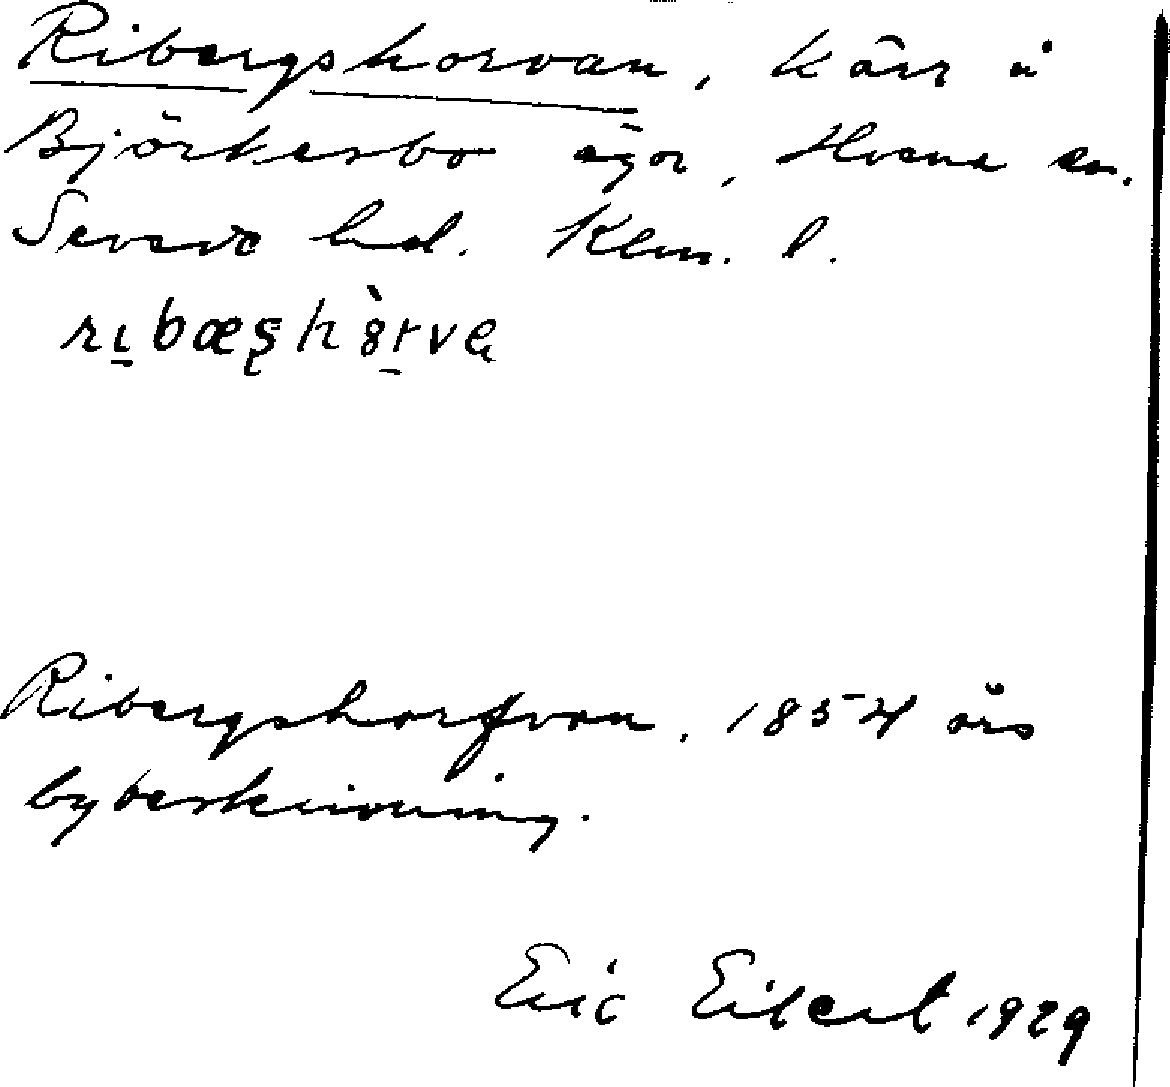 Ribergshorvan, kärr å
Björkesbo ägor, Hvena sn.
Sevede hd. Klm. l.
rıbæʂhȣ̀rvɐ
Ribergshorfvan, 1854 års
bybeskrivning.
Eric Eilert 1929